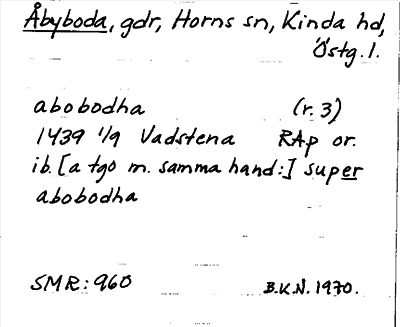 Åbyboda, gdr, Horns sn, Kinda hd,
Östg. l.
abobodha (r. 3)
1439 1/9 Vadstena RAp or.
ib. [a tgo m. samma hand:] super
abobodha
SMR: 960 B.K.N. 1970.